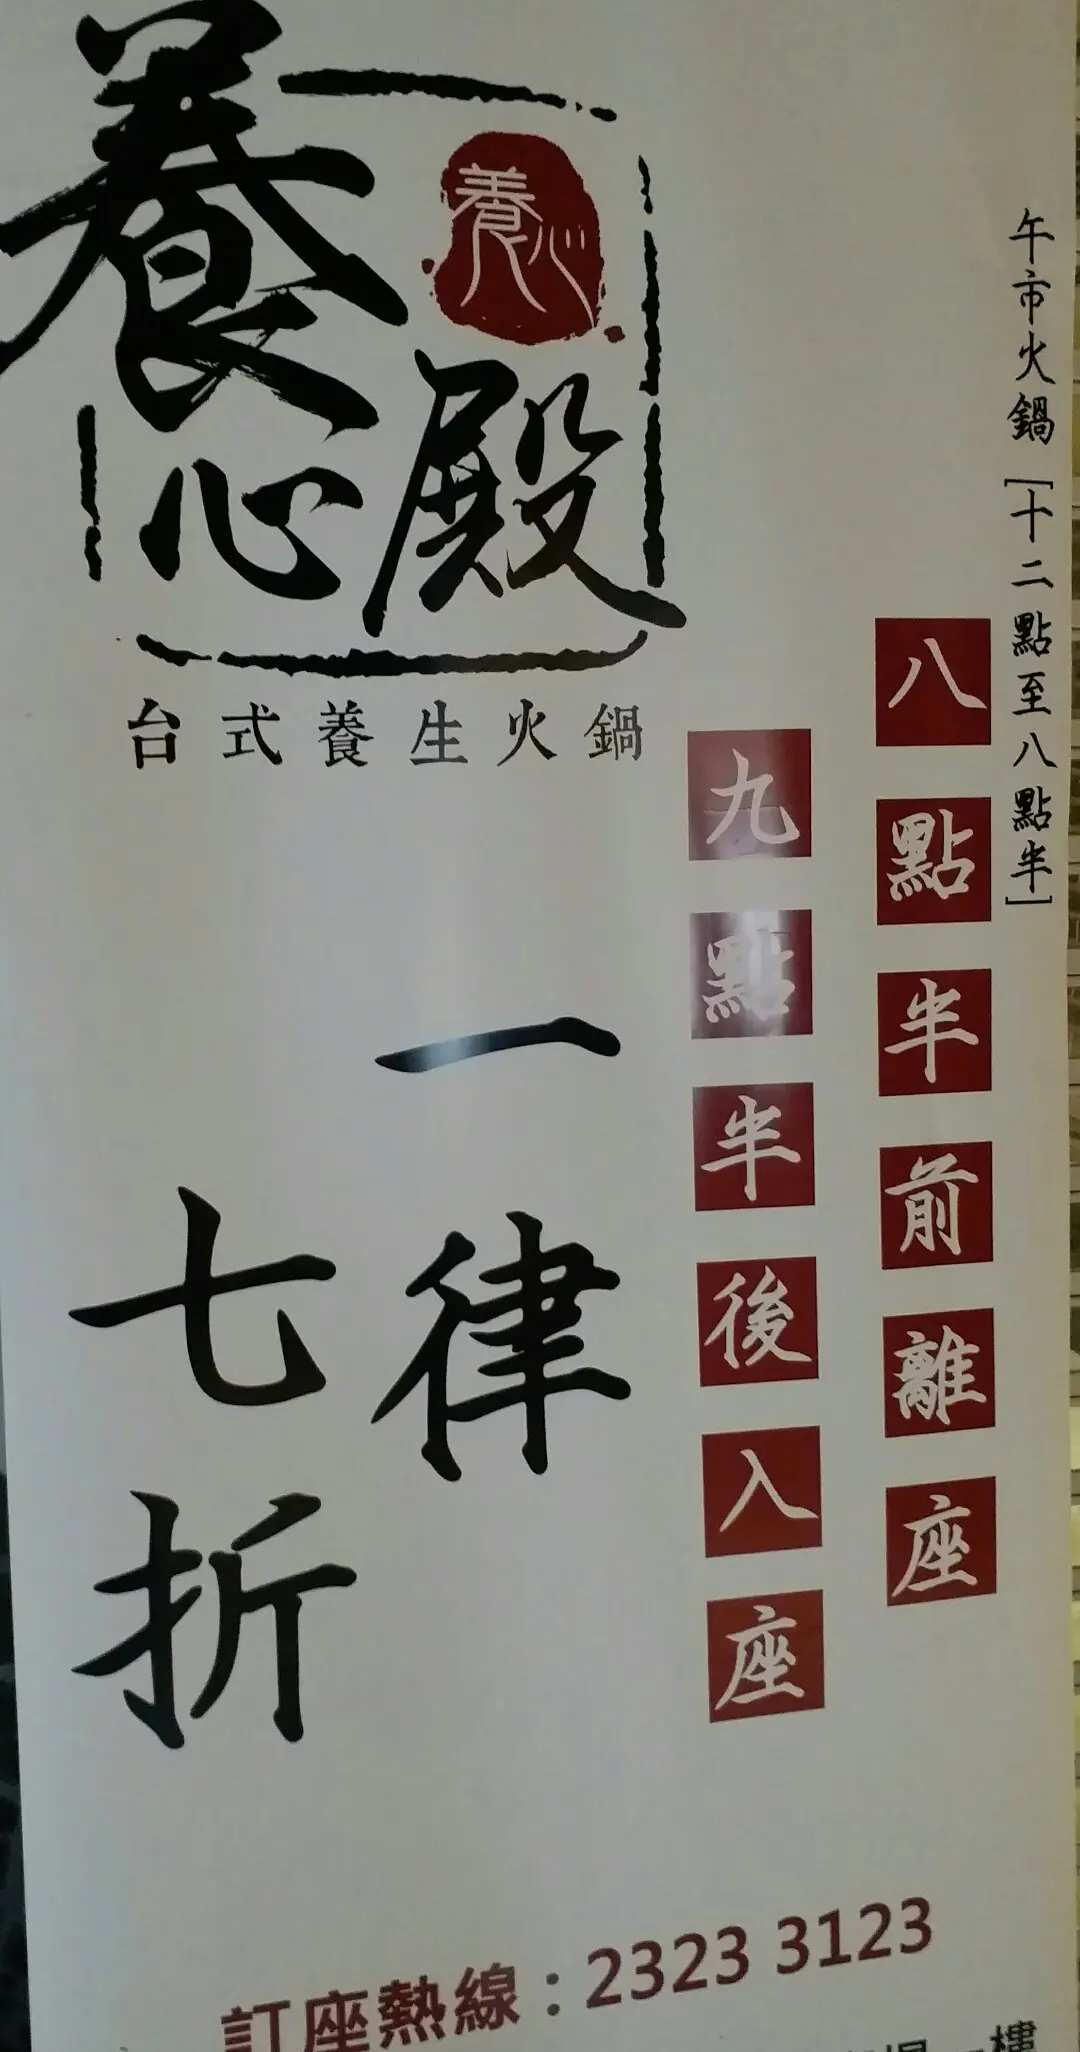 養心殿
養心
台式養生火鍋
午市火鍋[十二點至八點半]
八點半前離座
九點半後入座
一律
七折
訂座熱線：2323 3123
一樓